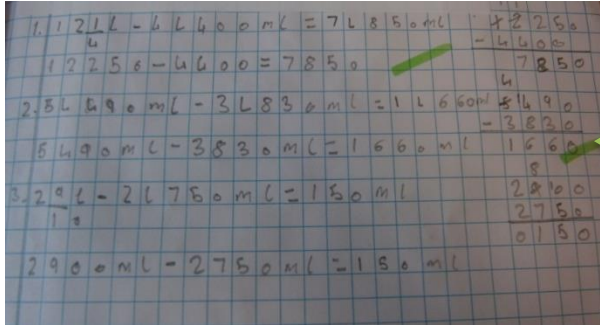 1. 12 1/4 L - 4L 400 ml = 7L 850 ml
12250 - 4400 = 7850
2. 5L 490 ml - 3L 830 ml = 1L 660 ml
5490 ml - 3830 ml = 1660 ml
3. 29/10 L - 2L 750 ml = 150 ml
2900 ml - 2750 ml = 150 ml
12250
- 4400
7850
4
5490
- 3830
1660
8
2900
2750
0150